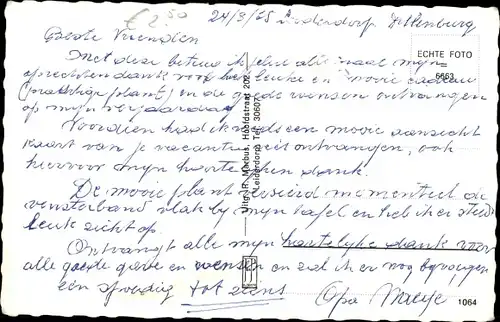 € 2.50
24/3/65 Leiderdorp
Geeste Vrienden
ECHTE FOTO
6663
Met deze betuig ik jullie alle naal mijn
oprechten dank voor het leuke en mooie cadeau
plant) en de goede wensen ontvangen
op mijn verjaardag
Voordien had ik reeds een mooie aanzicht
kaart van je vacantie reis ontvangen, ook
hiervoor mijn hartelijken dank.
Uitg. H. Markus, Hoofdstraat 202,
Leiderdorp Tel. 30607
De mooie plant momenteel de
vensterbank vlak by mijn tafel en heb ik er steeds
leuk zicht op
Ontvangt alle mijn hartelijke dank voor
alle goede gave en wensen en zal ik er nog byvoegen
een spoedig tot ziens Opa
1064